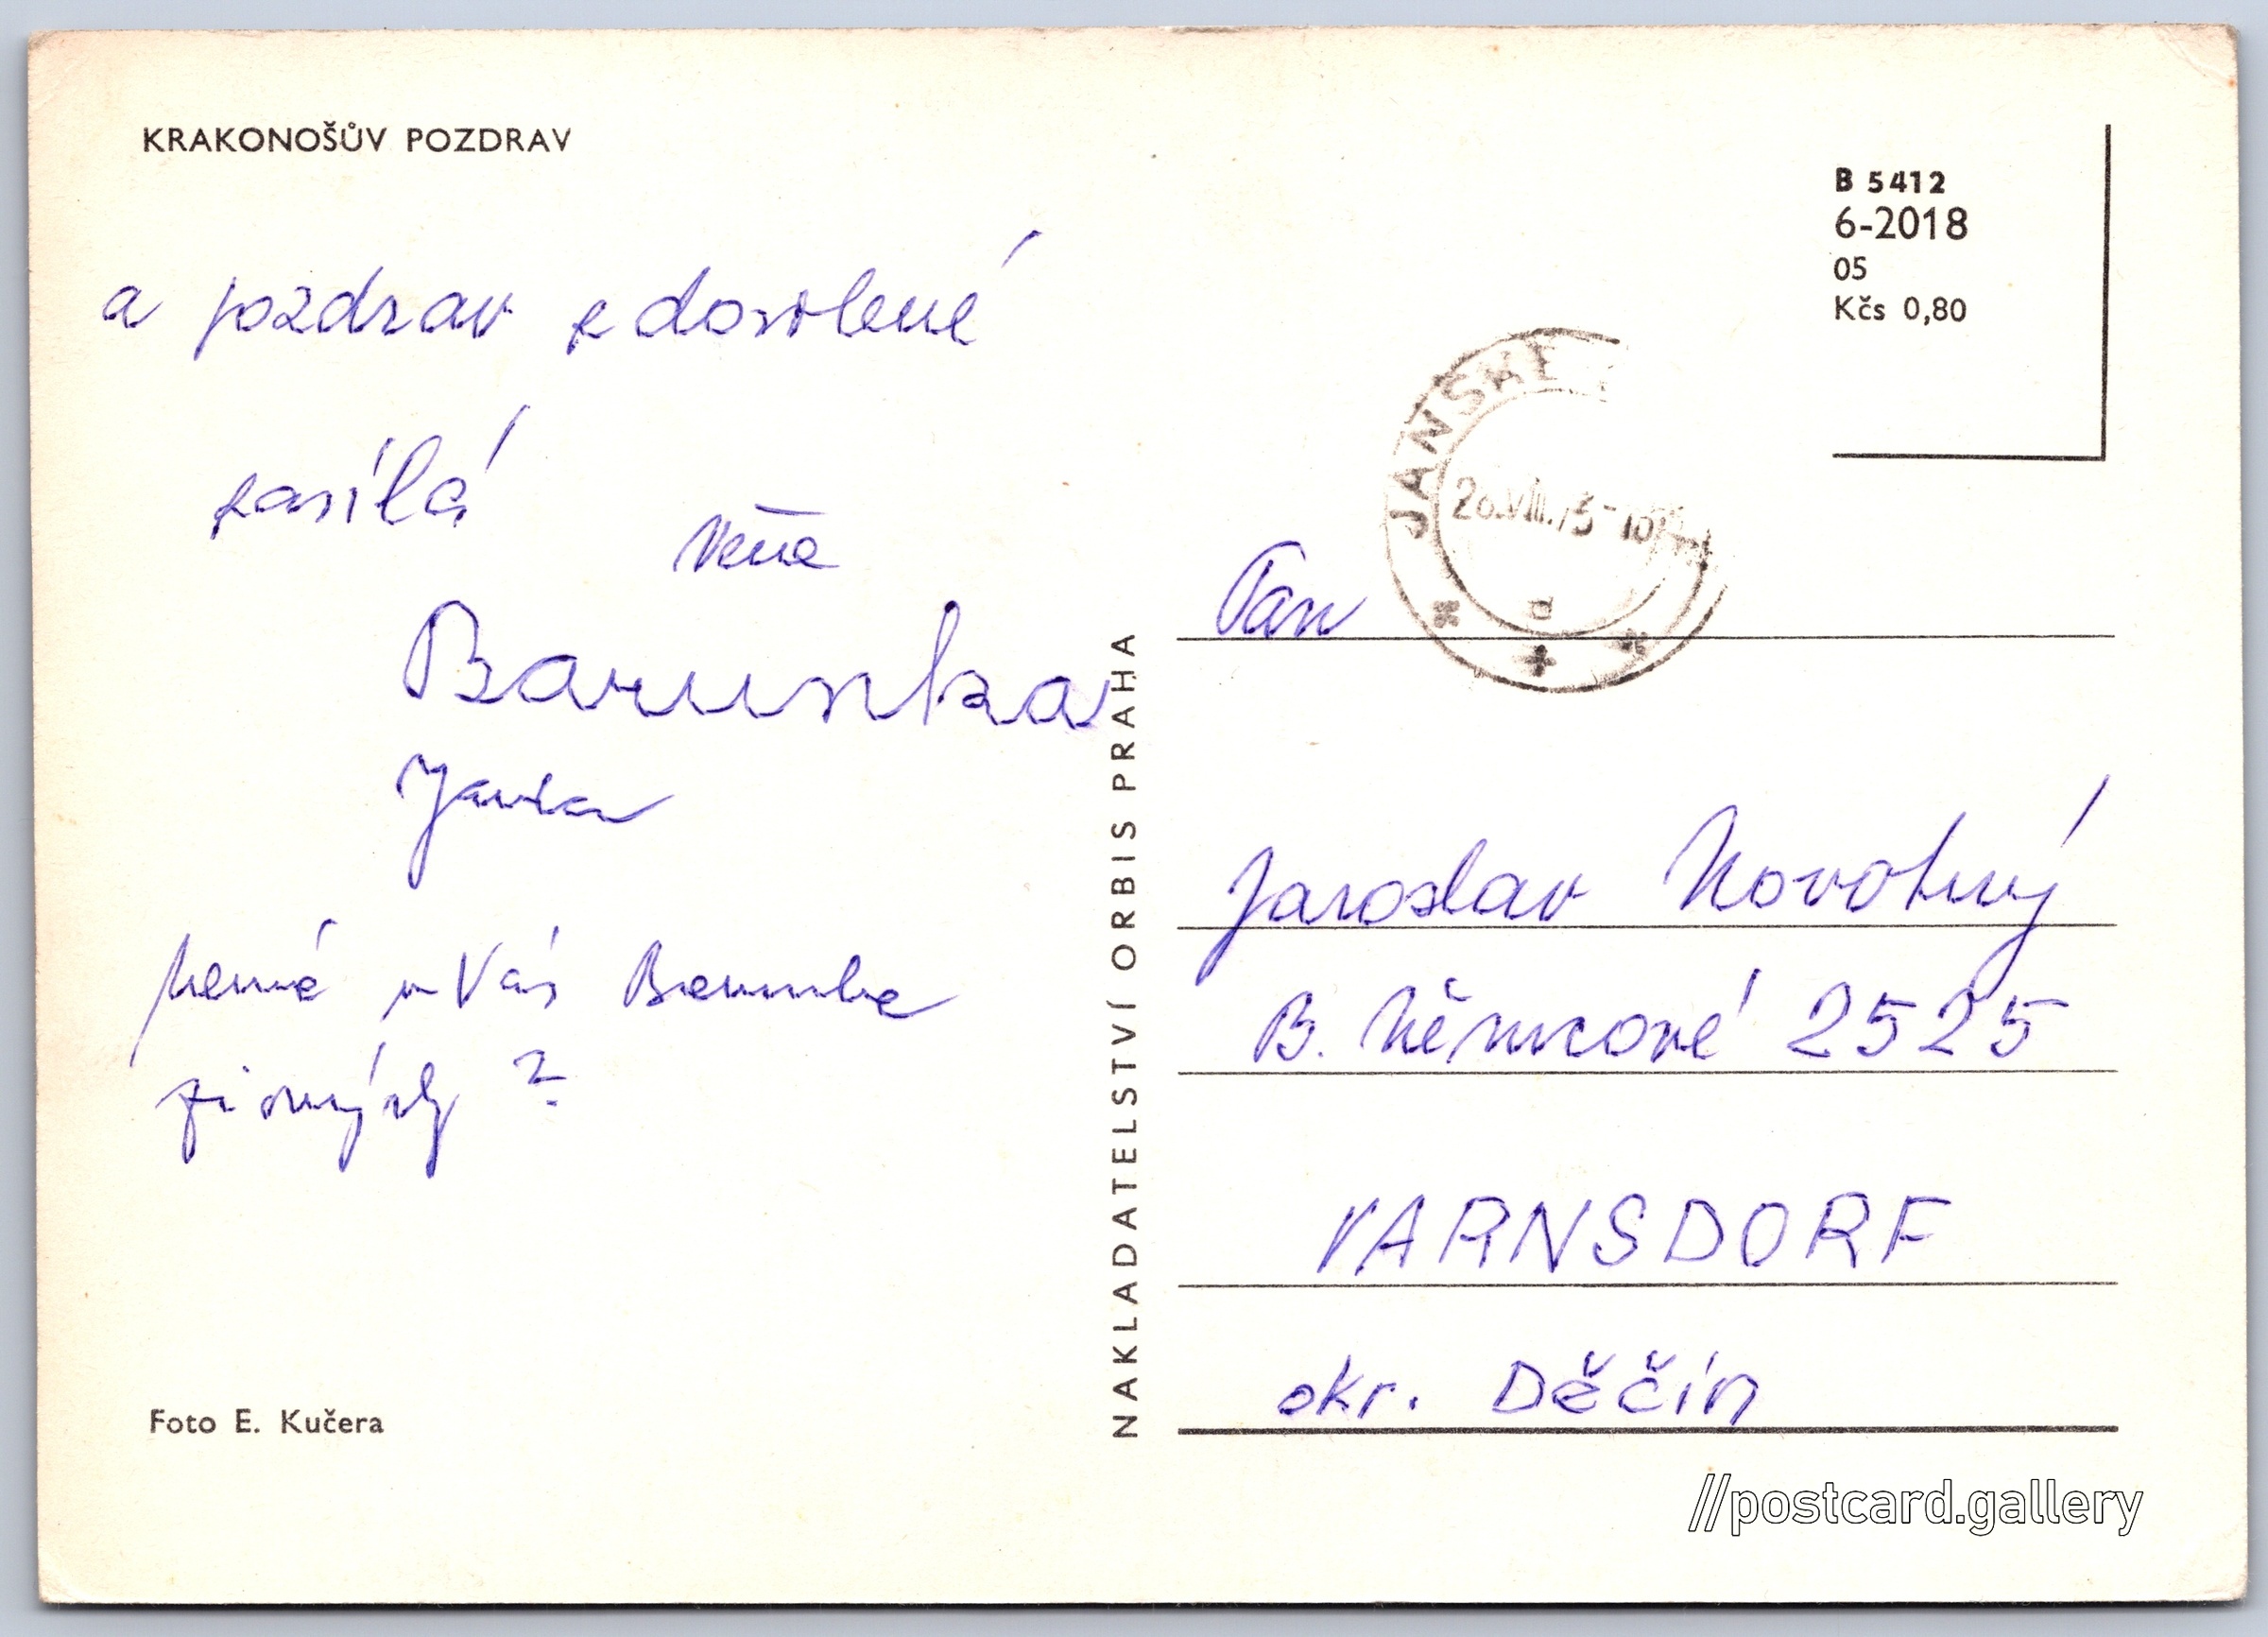 KRAKONOŠŮV POZDRAV
a pozdrav z dovolené
zasílá
Barunka
Janka
Není u Vás Barunka
B 5412
6-2018
05
Kčs 0,80
JANSKÉ
20.VIII.75-10
d
Pan
Jaroslav Novotný
B. Němcové 2525
VARNSDORF
okr. Děčín
NAKLADATELSTVÍ ORBIS PRAHA
Foto E. Kučera
//postcard.gallery